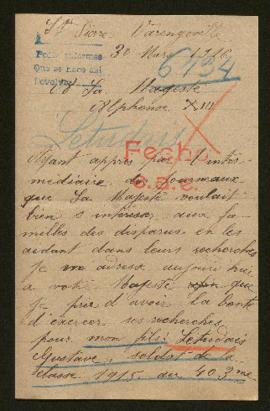 St Pierre Varengeville
30 Mars 1916
Pedir informes
Que se hace así
6194
A Sa Majesté
Alphonse XIII
Letudais
Ayant appris par l'inter
Fecho
médiaire de journaux
s.a.e.
que Sa Majesté voulait
bien s'interess, aux fa-
milles des disparus en les
aidant dans leurs recherches
Je m'adresse aujourd'hui
à votre Majesté afin que
je prie d'avoir la bonté
d'exercer ses recherches
pour mon fils Letudais
Gustave, soldat de la
classe 1915 du 403 me